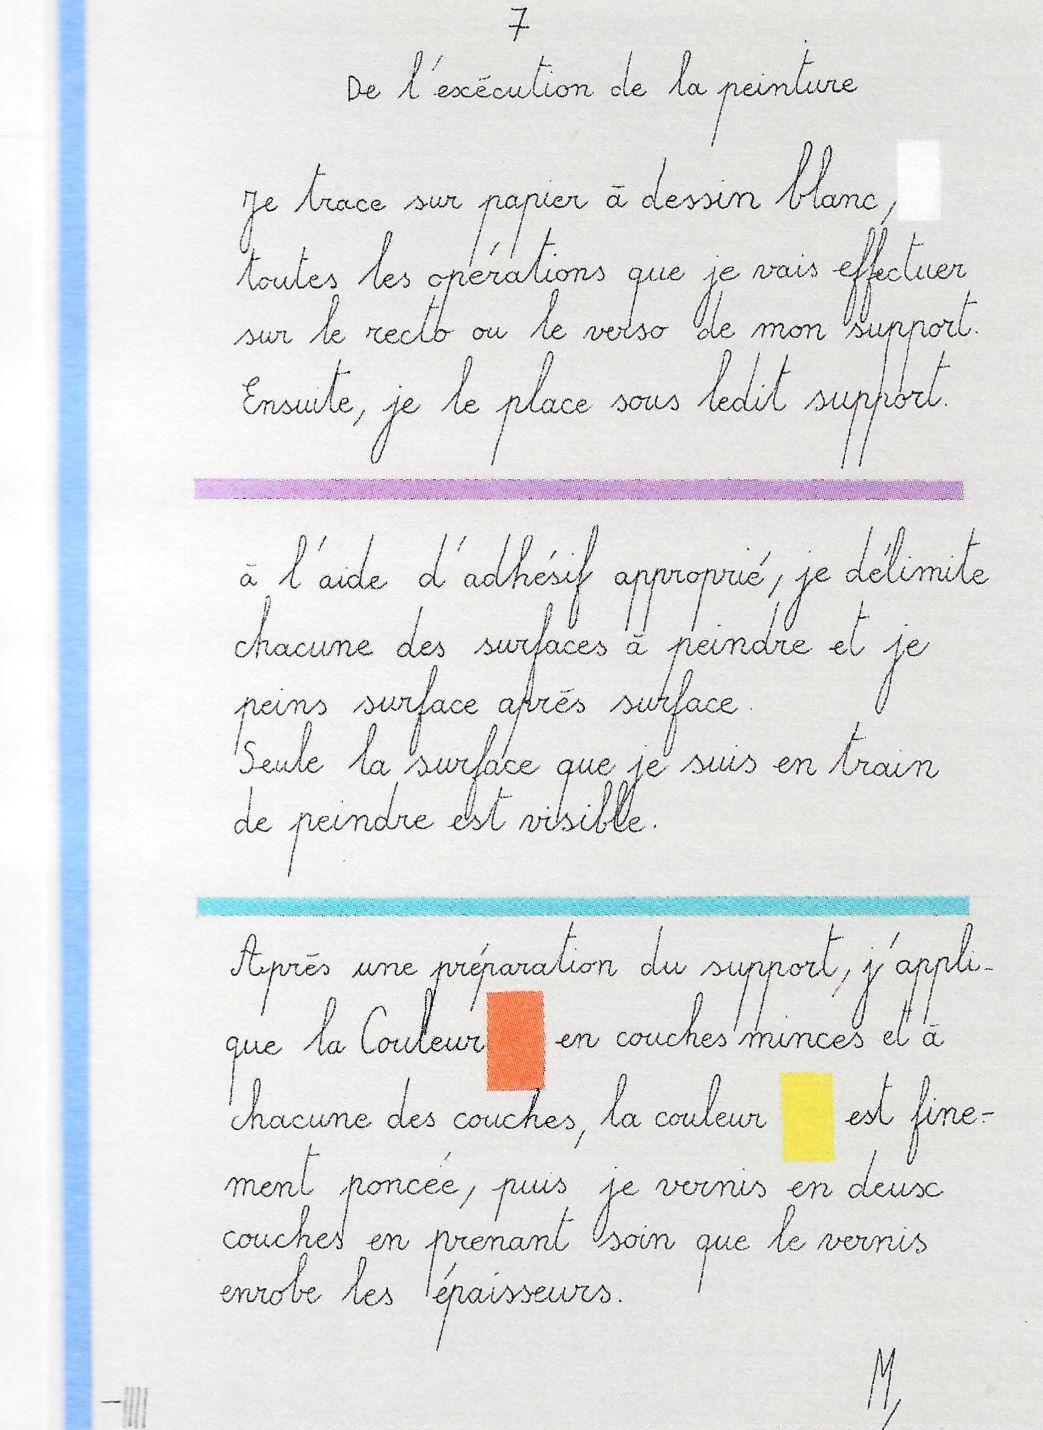 7
De l'exécution de la peinture
Je trace sur papier à dessin blanc,
toutes les opérations que je vais effectuer
sur le recto ou le verso de mon support.
Ensuite, je le place sous ledit support.
à l'aide d'adhésif approprié, je délimite
chacune des surfaces à peindre et je
peins surface après surface.
Seule la surface que je suis en train
de peindre est visible.
Après une préparation du support, j'appli-
que la Couleur en couches minces et à
chacune des couches, la couleur est fine-
ment poncée, puis je vernis en deux
couches en prenant soin que le vernis
enrobe les épaisseurs.
M,